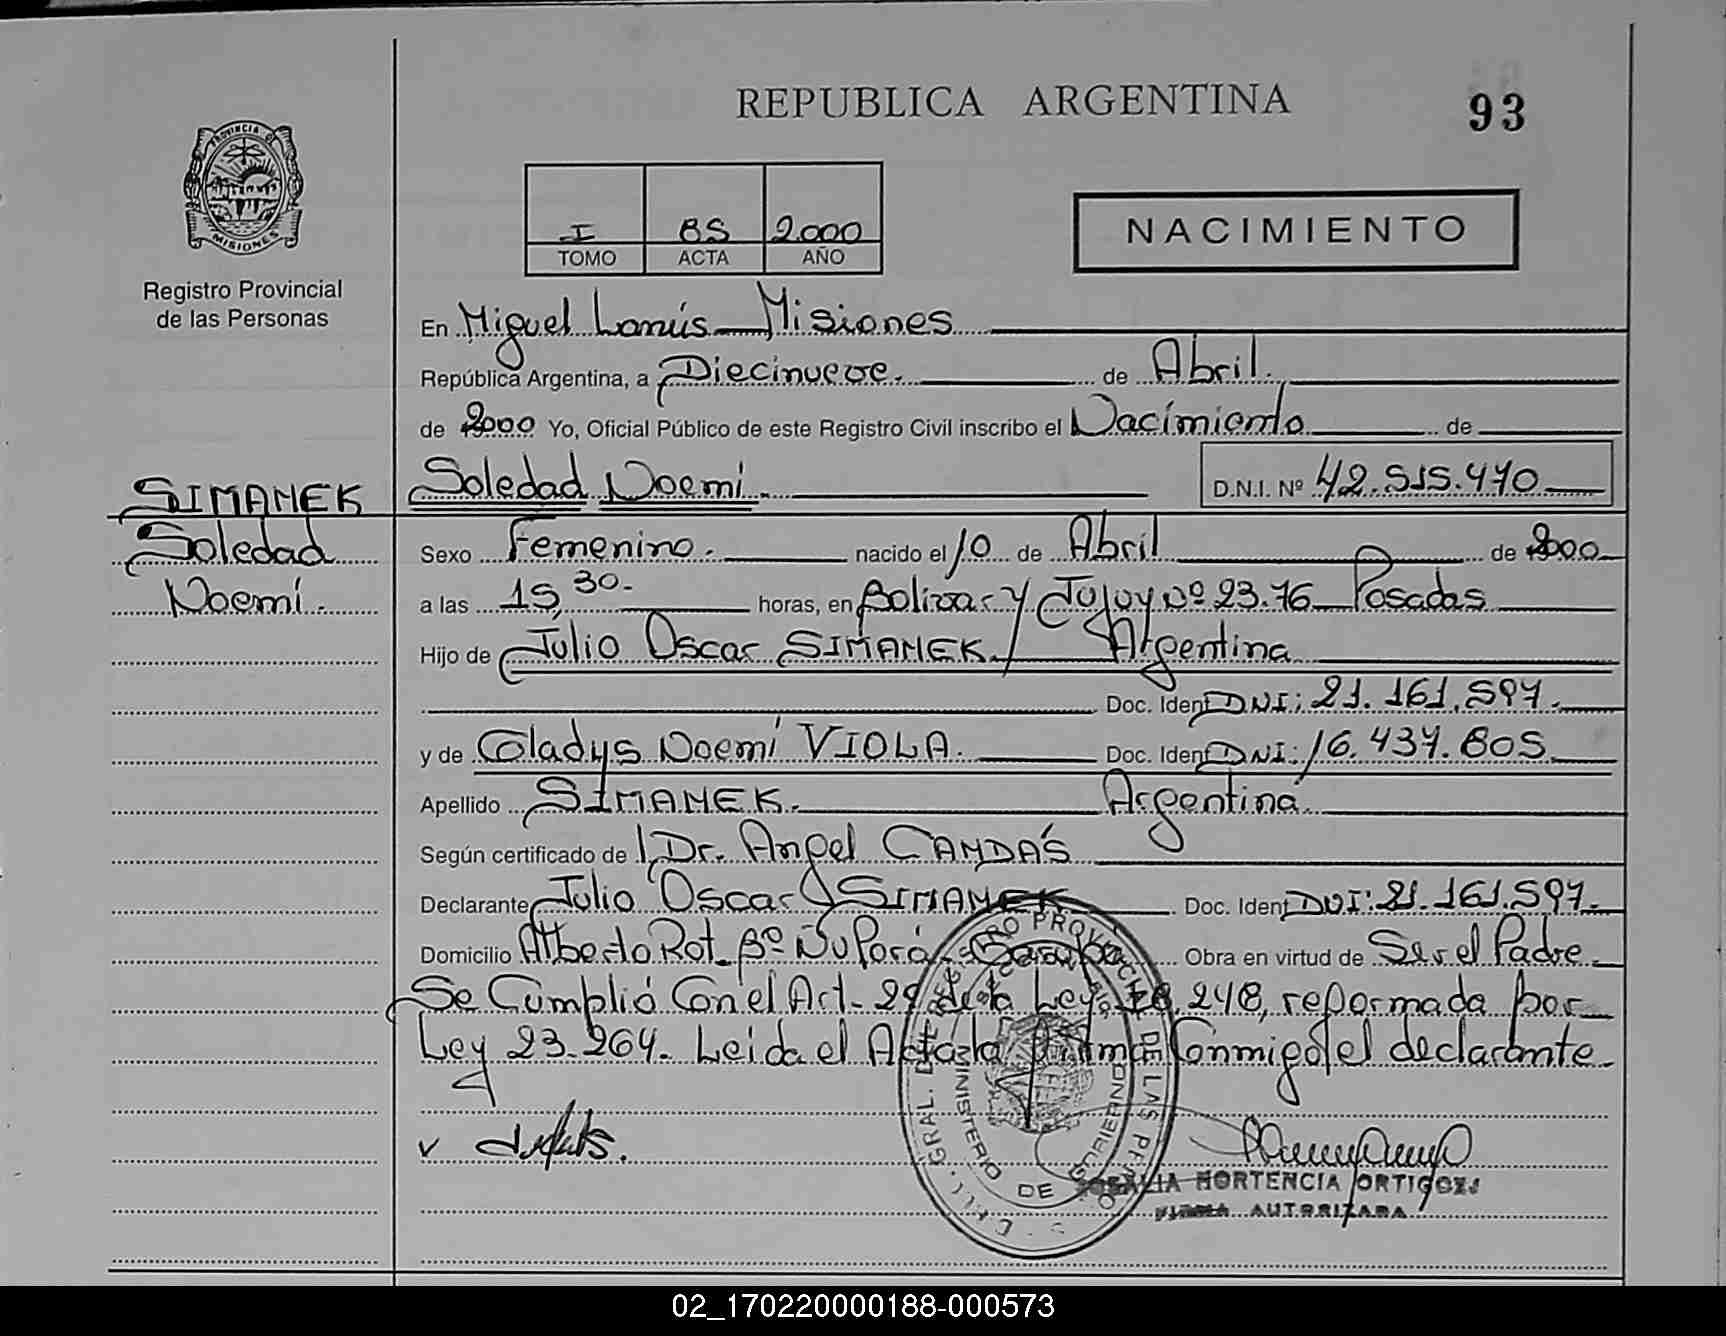 REPUBLICA ARGENTINA
93
PROVINCIA DE
MISIONES
Registro Provincial
de las Personas
I 85 2.000
TOMO ACTA AÑO
NACIMIENTO
En Miguel Lanús Misiones
República Argentina, a Diecinueve. de Abril.
de 2000 Yo, Oficial Público de este Registro Civil inscribo el Nacimiento de
SIMANEK
Soledad
Noemí.
Soledad Noemí. D.N.I. Nº 42.515.470
Sexo Femenino. nacido el 10 de Abril de 2000
a las 15,30- horas, en Bolivar y Jujuy Nº 23.76 Posadas
Hijo de Julio Oscar SIMANEK./ Argentina
Doc. Ident DNI: 21.161.597.
y de Gladys Noemí VIOLA. Doc. Ident DNI: 16.437.805.
Apellido SIMANEK. Argentina.
Según certificado de Dr. Angel CANDÁS
Declarante Julio Oscar SIMANEK Doc. Ident DNI: 21.161.597.
Domicilio Alberto Rot Bº Ñu Porá Garupá Obra en virtud de Ser el Padre
Se Cumplió Con el Art. 29 de la Ley 18.248, reformada por
Ley 23.264. Leida el Acta la firma Conmigo el declarante
v
HORTENCIA ORTIGOZA
FIRMA AUTORIZADA
GRAL. DEL REGISTRO PROVINCIAL DE LAS PER
MINISTERIO DE GOBIERNO
02_170220000188-000573